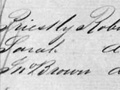 Priestly Robi
Sarah d
Jn Brown d